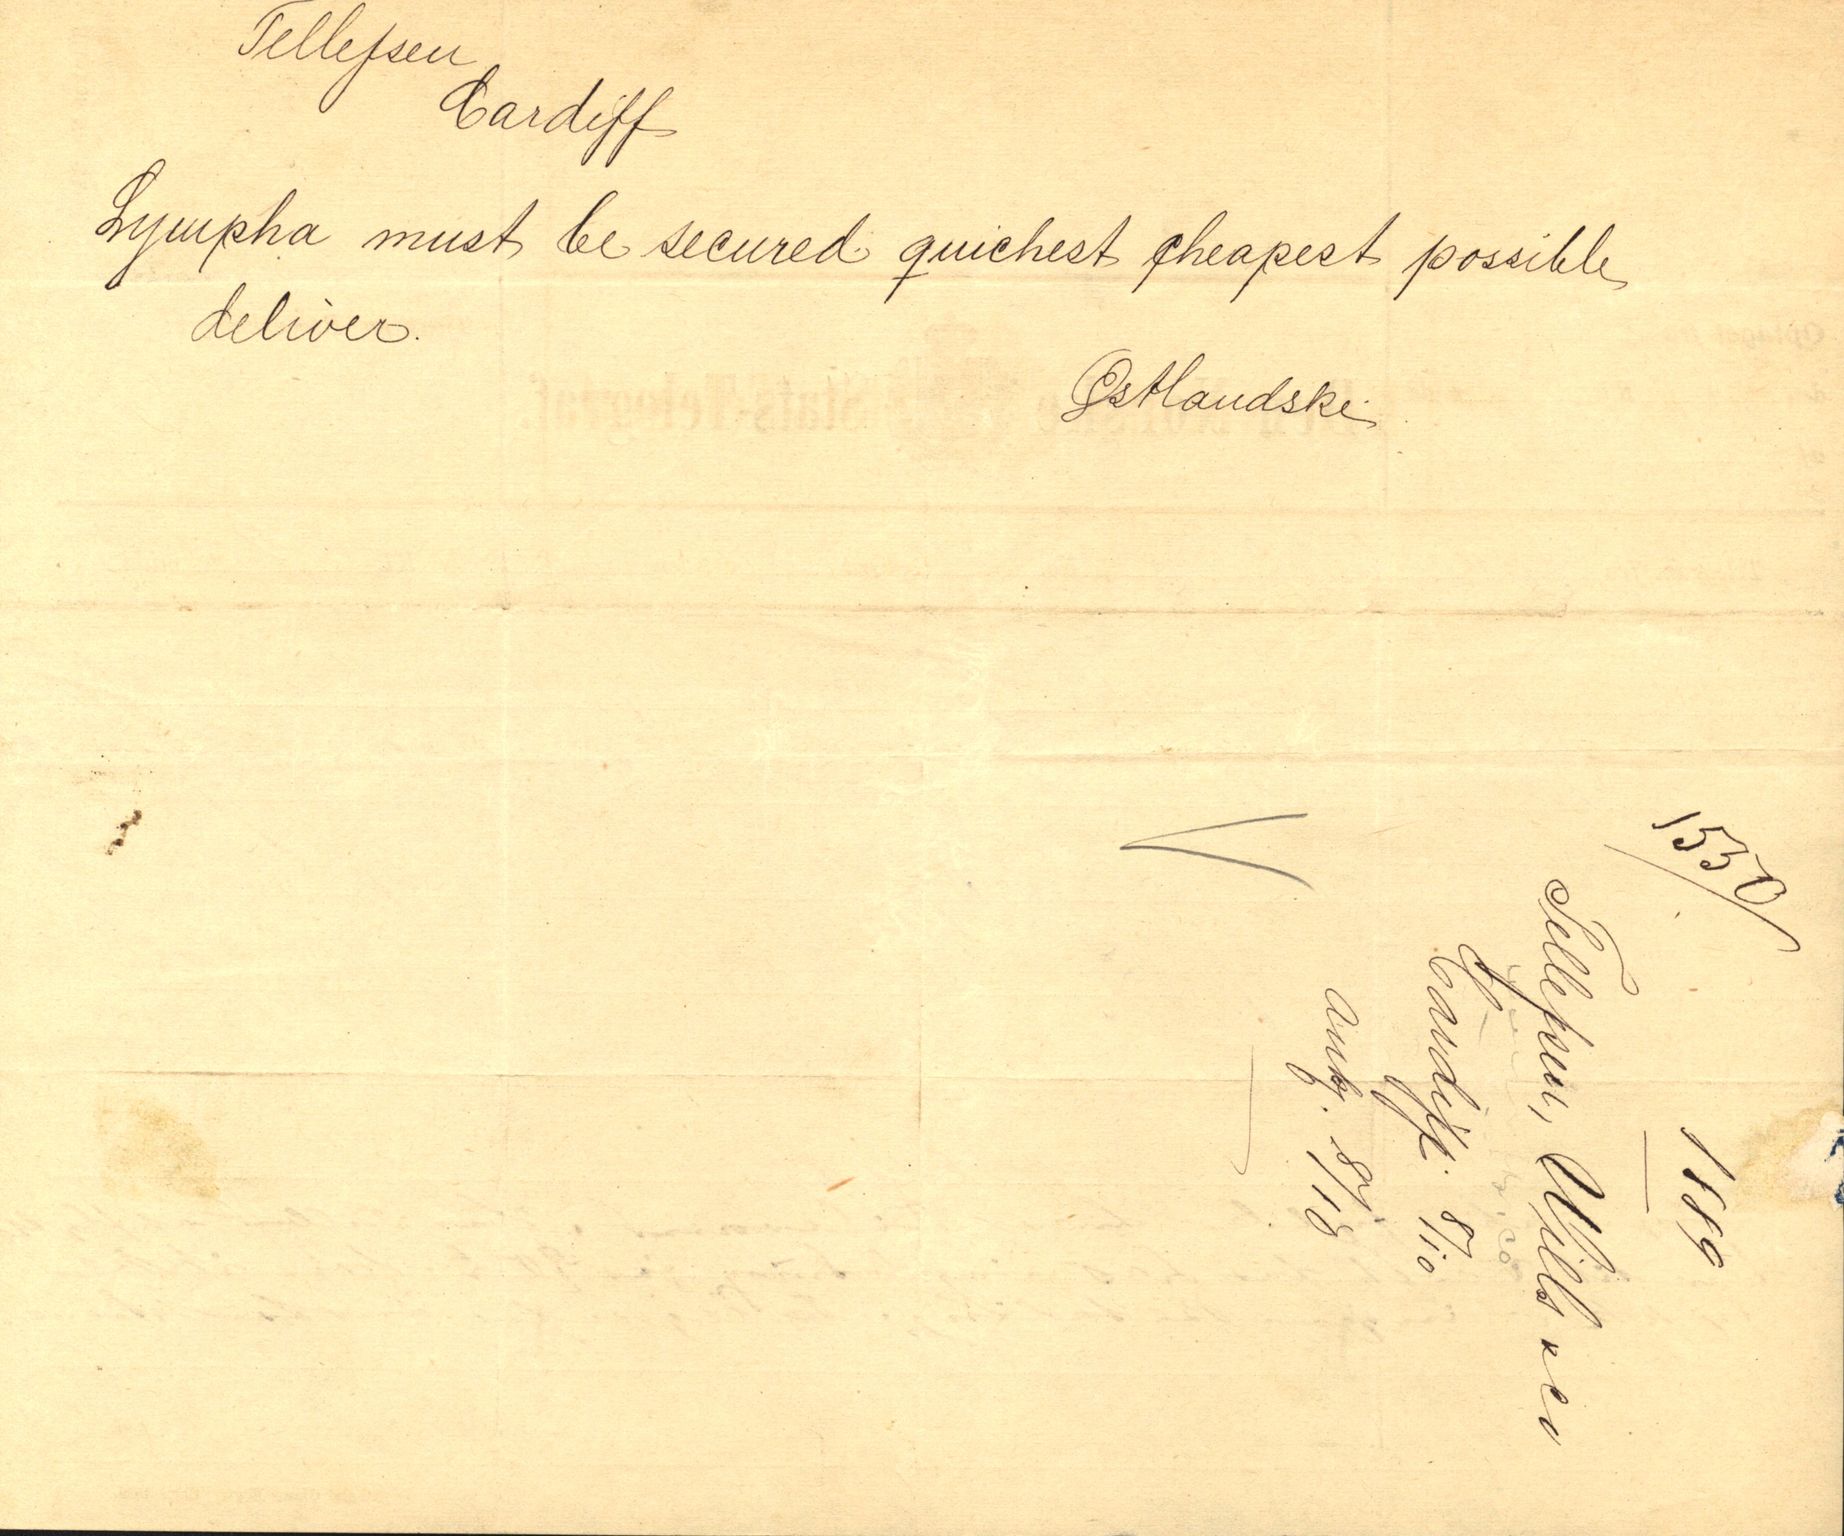 Tellefsen
Cardiff
Lympha must be secured quichest cheapest possible
deliver.
Østlandske
1550/
1889
Tellefsen, Wills & Co
Cardiff. 8/10
Ank. 8/10